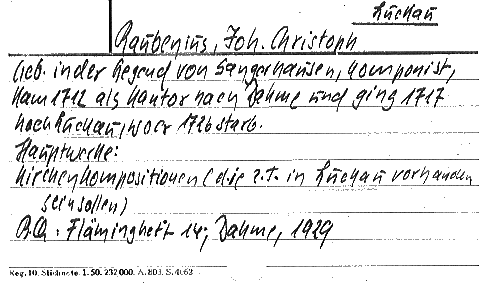 Luckau
Raubenius, Joh. Christoph
Geb. in der Gegend von Sangerhausen, Komponist,
kam 1712 als Kantor nach Dahme und ging 1717
nach Luckau, wo er 1726 starb.
Hauptwerke:
Kirchenkompositionen (die z.T. in Luckau vorhanden
sein sollen)
B.Qu.: Flämingheft 14; Dahme, 1929
Reg. 10. Stichnote. 1. 50. 232 000. A. 803. S. 4062